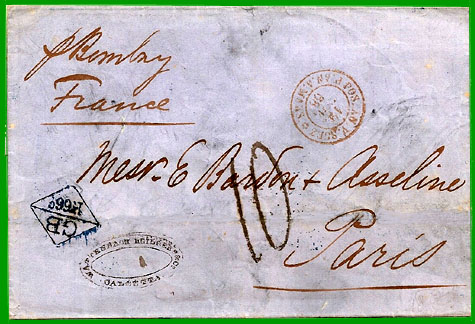 p Bombay
France
Messr. E Bardon & Asseline
10
Paris
GB
CALCUTTA